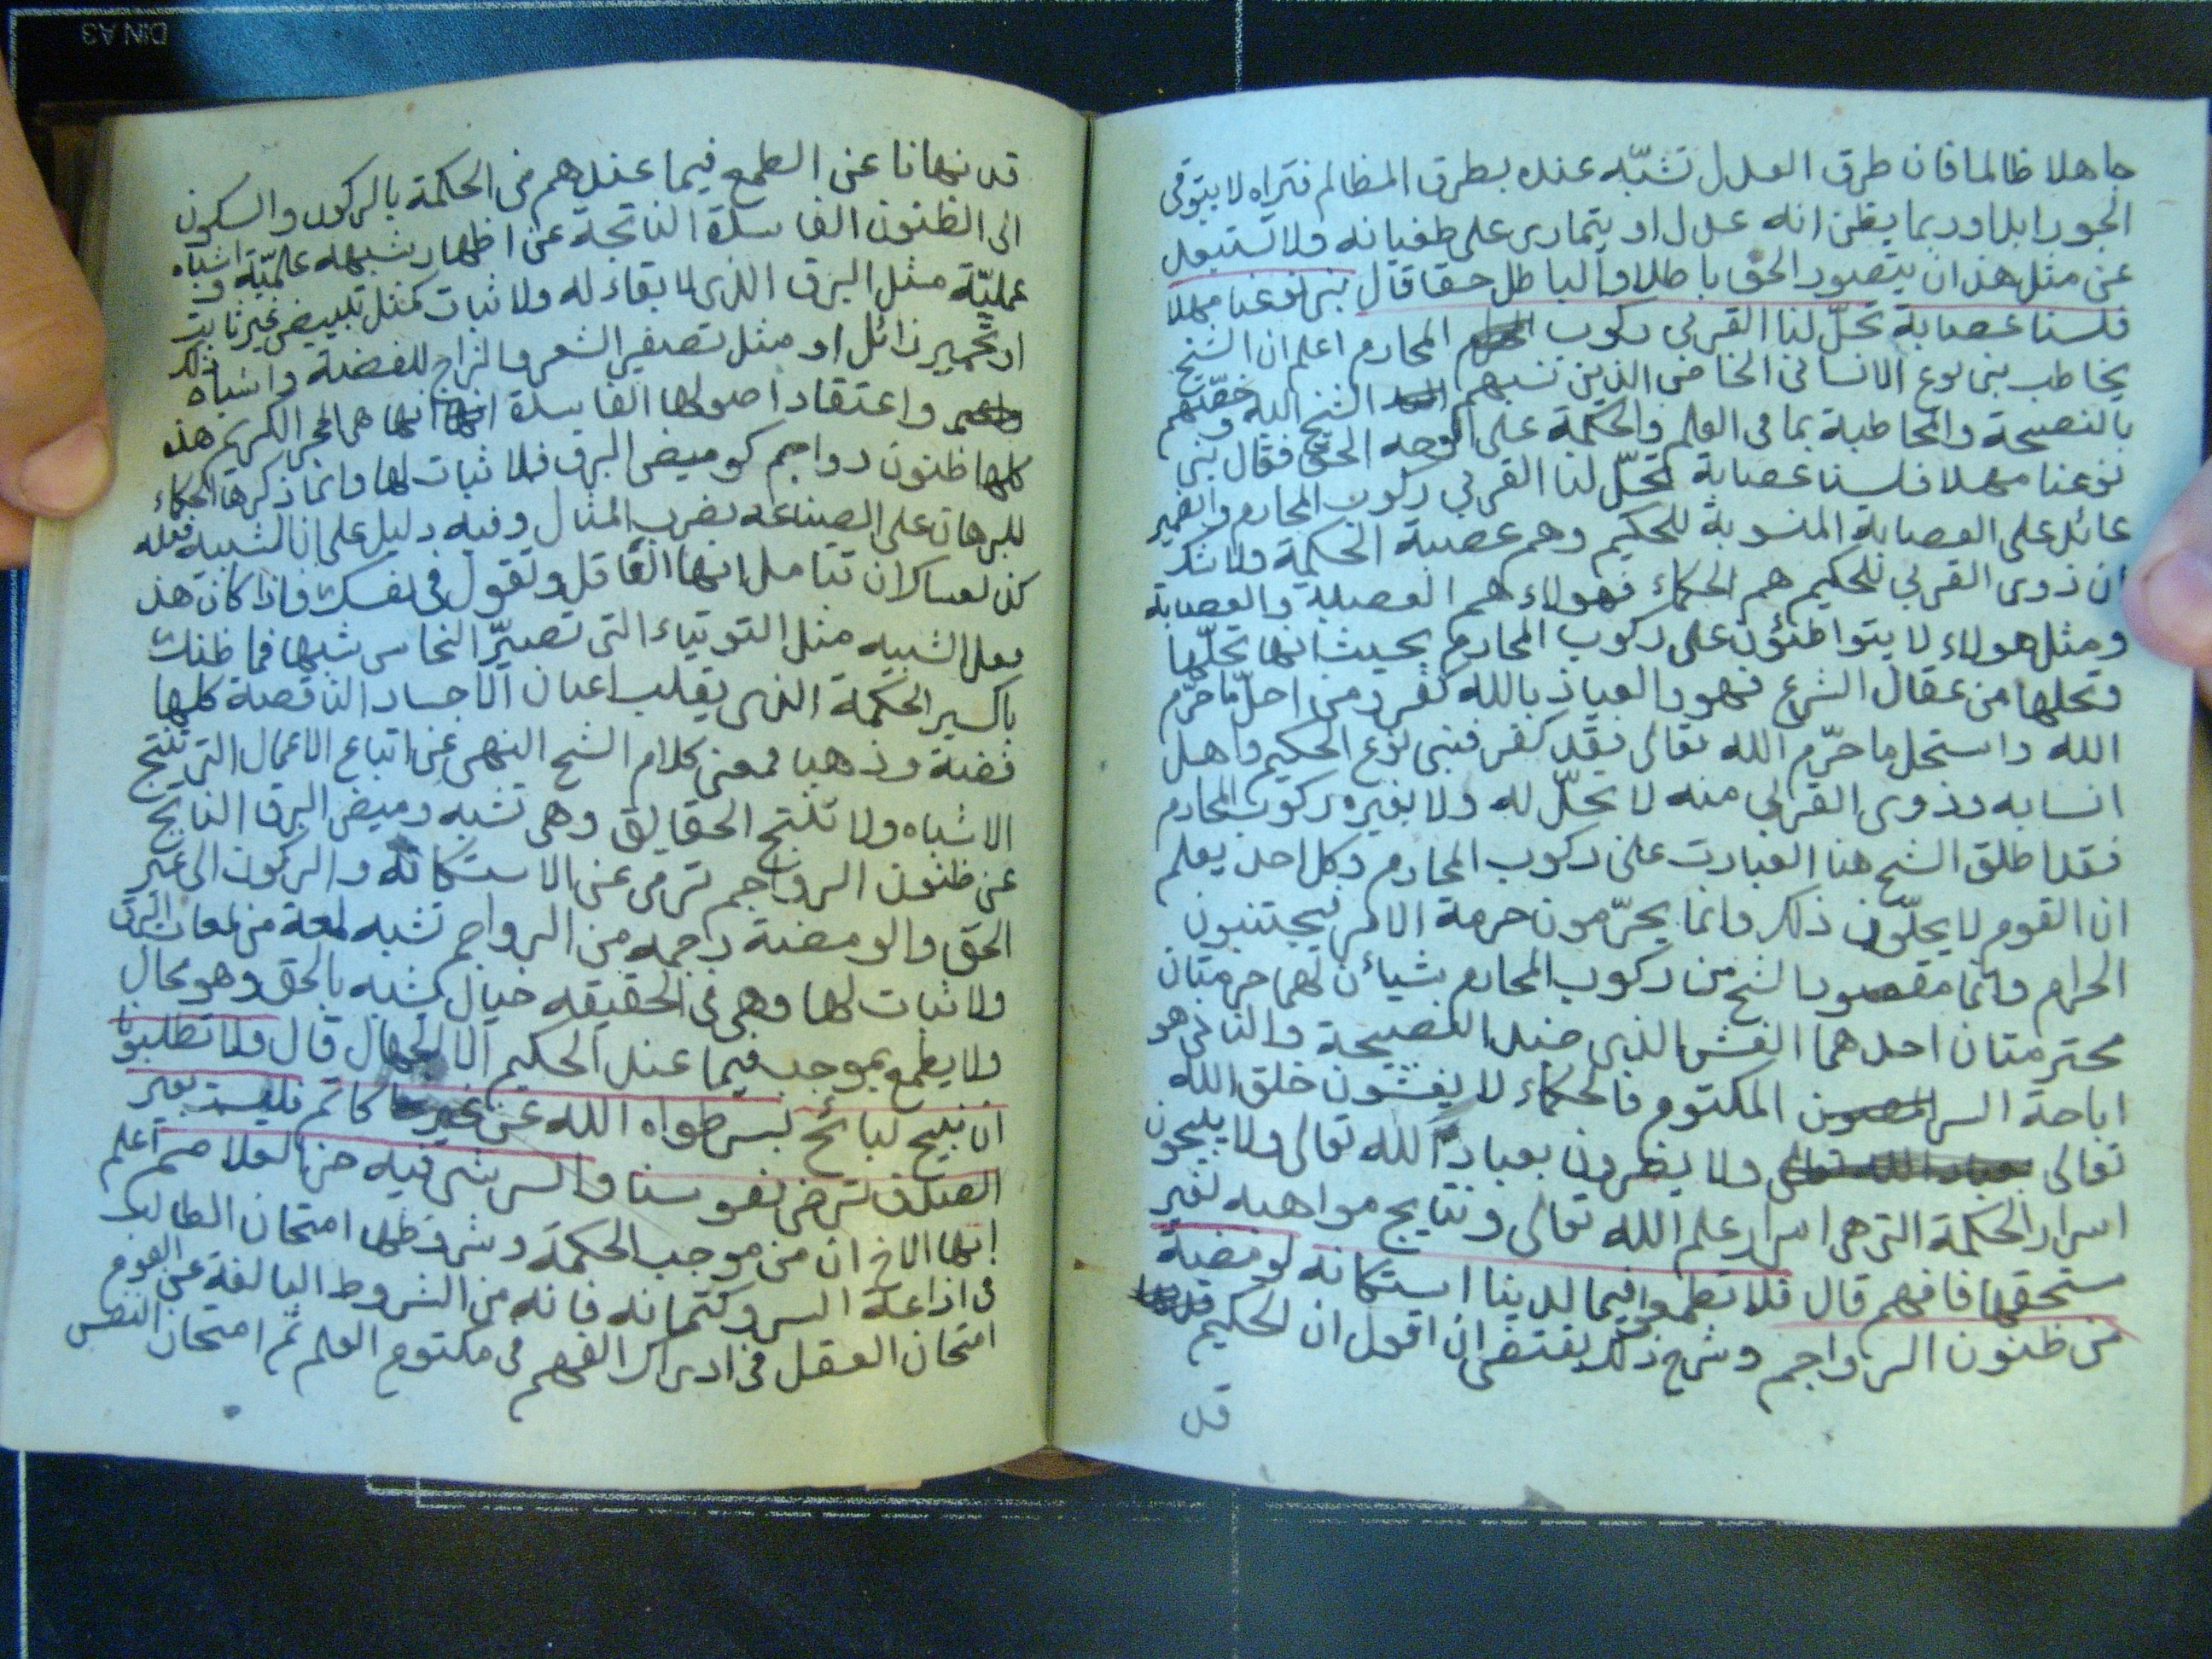 جاهلا ظالما فان طرق العدل تشبّه عنده بطرق المظالم فتراه لا يتوقى
الجور ابدا وربما يظن انه عدل او يتمادى على طغيانه ولا تستبعد
عن مثل هذا ان يتصور الحق باطلا والباطل حقا قال بنى نوعنا مهلا
فلسنا عصابة تحلّ لنا القربى ركوب المحارم اعلم ان الشيخ
يخاطب بنى نوع الانسانى الخاص الذين نسبهم الشيخ اليه وخصّهم
بالنصيحة والمخاطبة بما فى العلم والحكمة على الوجه الحق فقال بنى
نوعنا مهلا فلسنا عصابة تحلّ لنا القربى ركوب المحارم والضمير
عائد على العصابة المنسوبة للحكيم وهم عصبة الحكمة ولا شك
ان ذوى القربى للحكيم هم الحكماء فهولاء هم العصبة والعصابة
ومثل هولاء لا يتواطئون على ركوب المحارم بحيث انها تحلّها
وتحلها من عقال الشرع فهو والعياذ بالله كفر ومن احلّ ما حرّم
الله واستحل ما حرّم الله تعالى فقد كفر فبنى نوع الحكيم واهل
انسابه وذوى القربى منه لا يحلّ له ولا بغيره ركوب المحارم
فقد اطلق الشيخ هنا العبارت على ركوب المحارم وكل احد يعلم
ان القوم لا يحلّون ذلك وانما يحرّمون حرمة الامر فيجتنبون
الحرام وانما مقصود الشيخ من ركوب المحارم بشيأن لهما حرمتان
محترمتان احدهما الغش الذى ضد النصيحة والثانى هو
اباحة السر المكتوم فالحكماء لا يغشون خلق الله
تعالى ولا يضرون بعباد الله تعالى ولا يبيحون
اسرار الحكمة التى هى اسرار علم الله تعالى ونتايج مواهبه لغير
مستحقها فافهم قال فلا تطمعوا فيما لدينا استكانه لومضة
من ظنون الرواجم وشرح ذلك يقتضى ان اقول ان الحكيم
قد
قد نهانا عن الطمع فيما عندهم من الحكمة بالركون والسكون
الى الظنون الفاسدة الناتجة عن اظهار شبهه علميّة واشباه
عمليّة مثل البرق الذى لا بقاء له ولا ثبات كمثل تبييض غير ثابت
او تحمير زائل او مثل تصفير الشعر والزاج للفضة واشباه ذلك
واعتقاد اصولها الفاسدة انها هى الحجر الكريم هذه
كلها ظنون رواجم كوميض البرق فلا ثبات لها وانما ذكرها الحكماء
للبرهان على الصناعة بضرب المثال وفيه دليل على ان الشبيه فعله
كن لعساك ان تتامل ايها العاقل وتقول فى نفسك فاذا كان هذ
فعل الشبيه مثل التوتياء التى تصيّر النحاس شبها فما ظنك
باكسير الحكمة الذى يقلب اعيان الاجساد الناقصة كلها
فضة وذهبا فمعنى كلام الشيخ النهى عن اتباع الاعمال التى تنتج
الاشباه ولا تنتج الحقايق وهى تشبه وميض البرق الناتج
عن ظنون الرواجم ترمى عن الاستكانه والركون الى غير
الحق والومضة رجمه من الرواجم تشبه لمعة من لمعات البرق
ولا ثبات لها وهى فى الحقيقه خيال يشبه بالحق وهو محال
ولا يطمع بموجب فيما عند الحكيم الا الجهال قال ولا تطلبوا
ان نبيح لبائح بسر طواه الله عن كاتم فليست بغير
الصدق ترضى نفوسنا والسر شرفيه حز العلاصم اعلم
ايها الاخ ان من موجب الحكمة وشرطها امتحان الطالب
فى اذاعة السر وكتمانه فانه من الشروط البالغة عن القوم
امتحان العقل فى ادراك الفهم فى مكتوم العلم ثم امتحان النفس